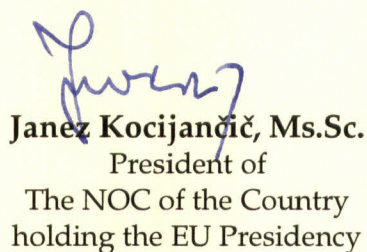 Janez Kocijančič, Ms.Sc.
President of
The NOC of the Country
holding the EU Presidency